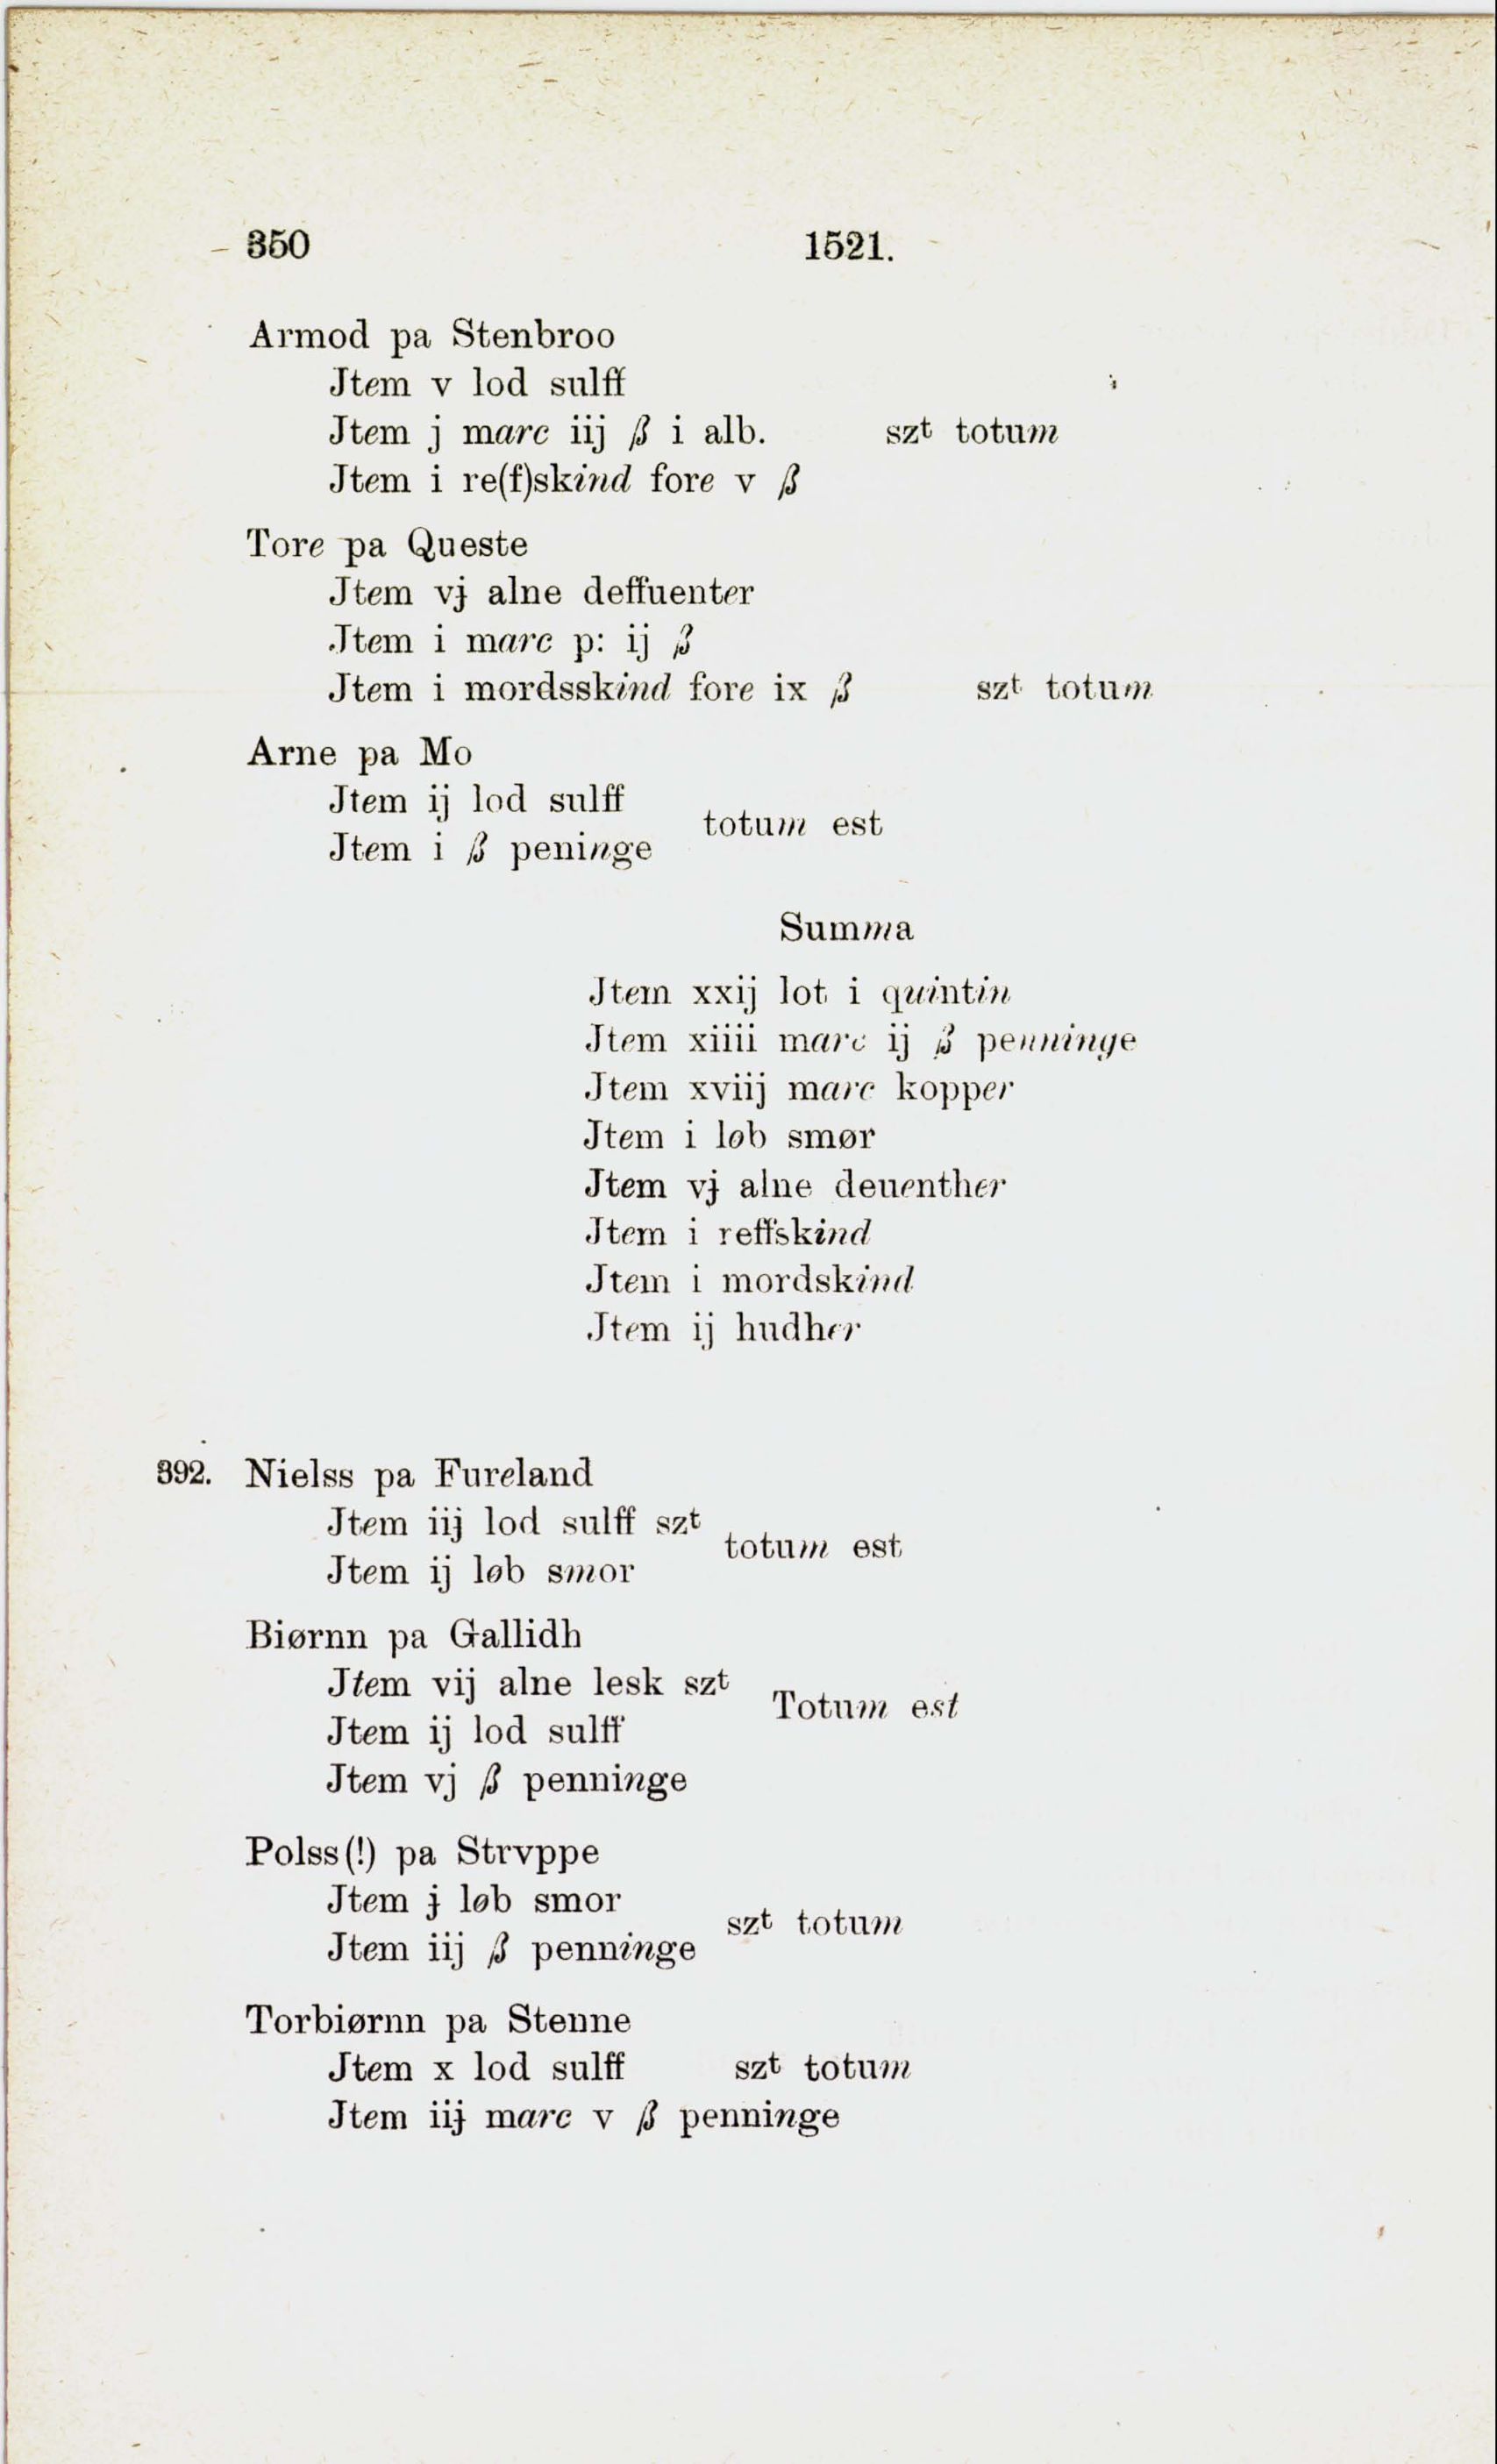 350 1521.
Armod pa Stenbroo
Jtem v lod sulff
Jtem j marc iij ß i alb. szt totum
Jtem i re(f)skind fore v ß
Tore pa Queste
Jtem vj alne deffuenter
Jtem i marc p: ij ß
Jtem i mordsskind fore ix ß szt totum
Arne pa Mo
Jtem ij lod sulff
totum est
Jtem i ß peninge
Summa
Jtem xxij lot i quintin
Jtem xiiii marc ij ß penninge
Jtem xviij marc kopper
Jtem i løb smør
Jtem vj alne deuenther
Jtem i reffskind
Jtem i mordskind
Jtem ij hudher
392. Nielss pa Fureland
Jtem iij lod sulff szt
totum est
Jtem ij løb smor
Biørnn pa Gallidh
Jtem vij alne lesk szt
Totum est
Jtem ij lod sulff
Jtem vj ß penninge
Polss(!) pa Strvppe
Jtem j løb smor
szt totum
Jtem iij ß penninge
Torbiørnn pa Stenne
Jtem x lod sulff szt totum
Jtem iij marc v ß penninge